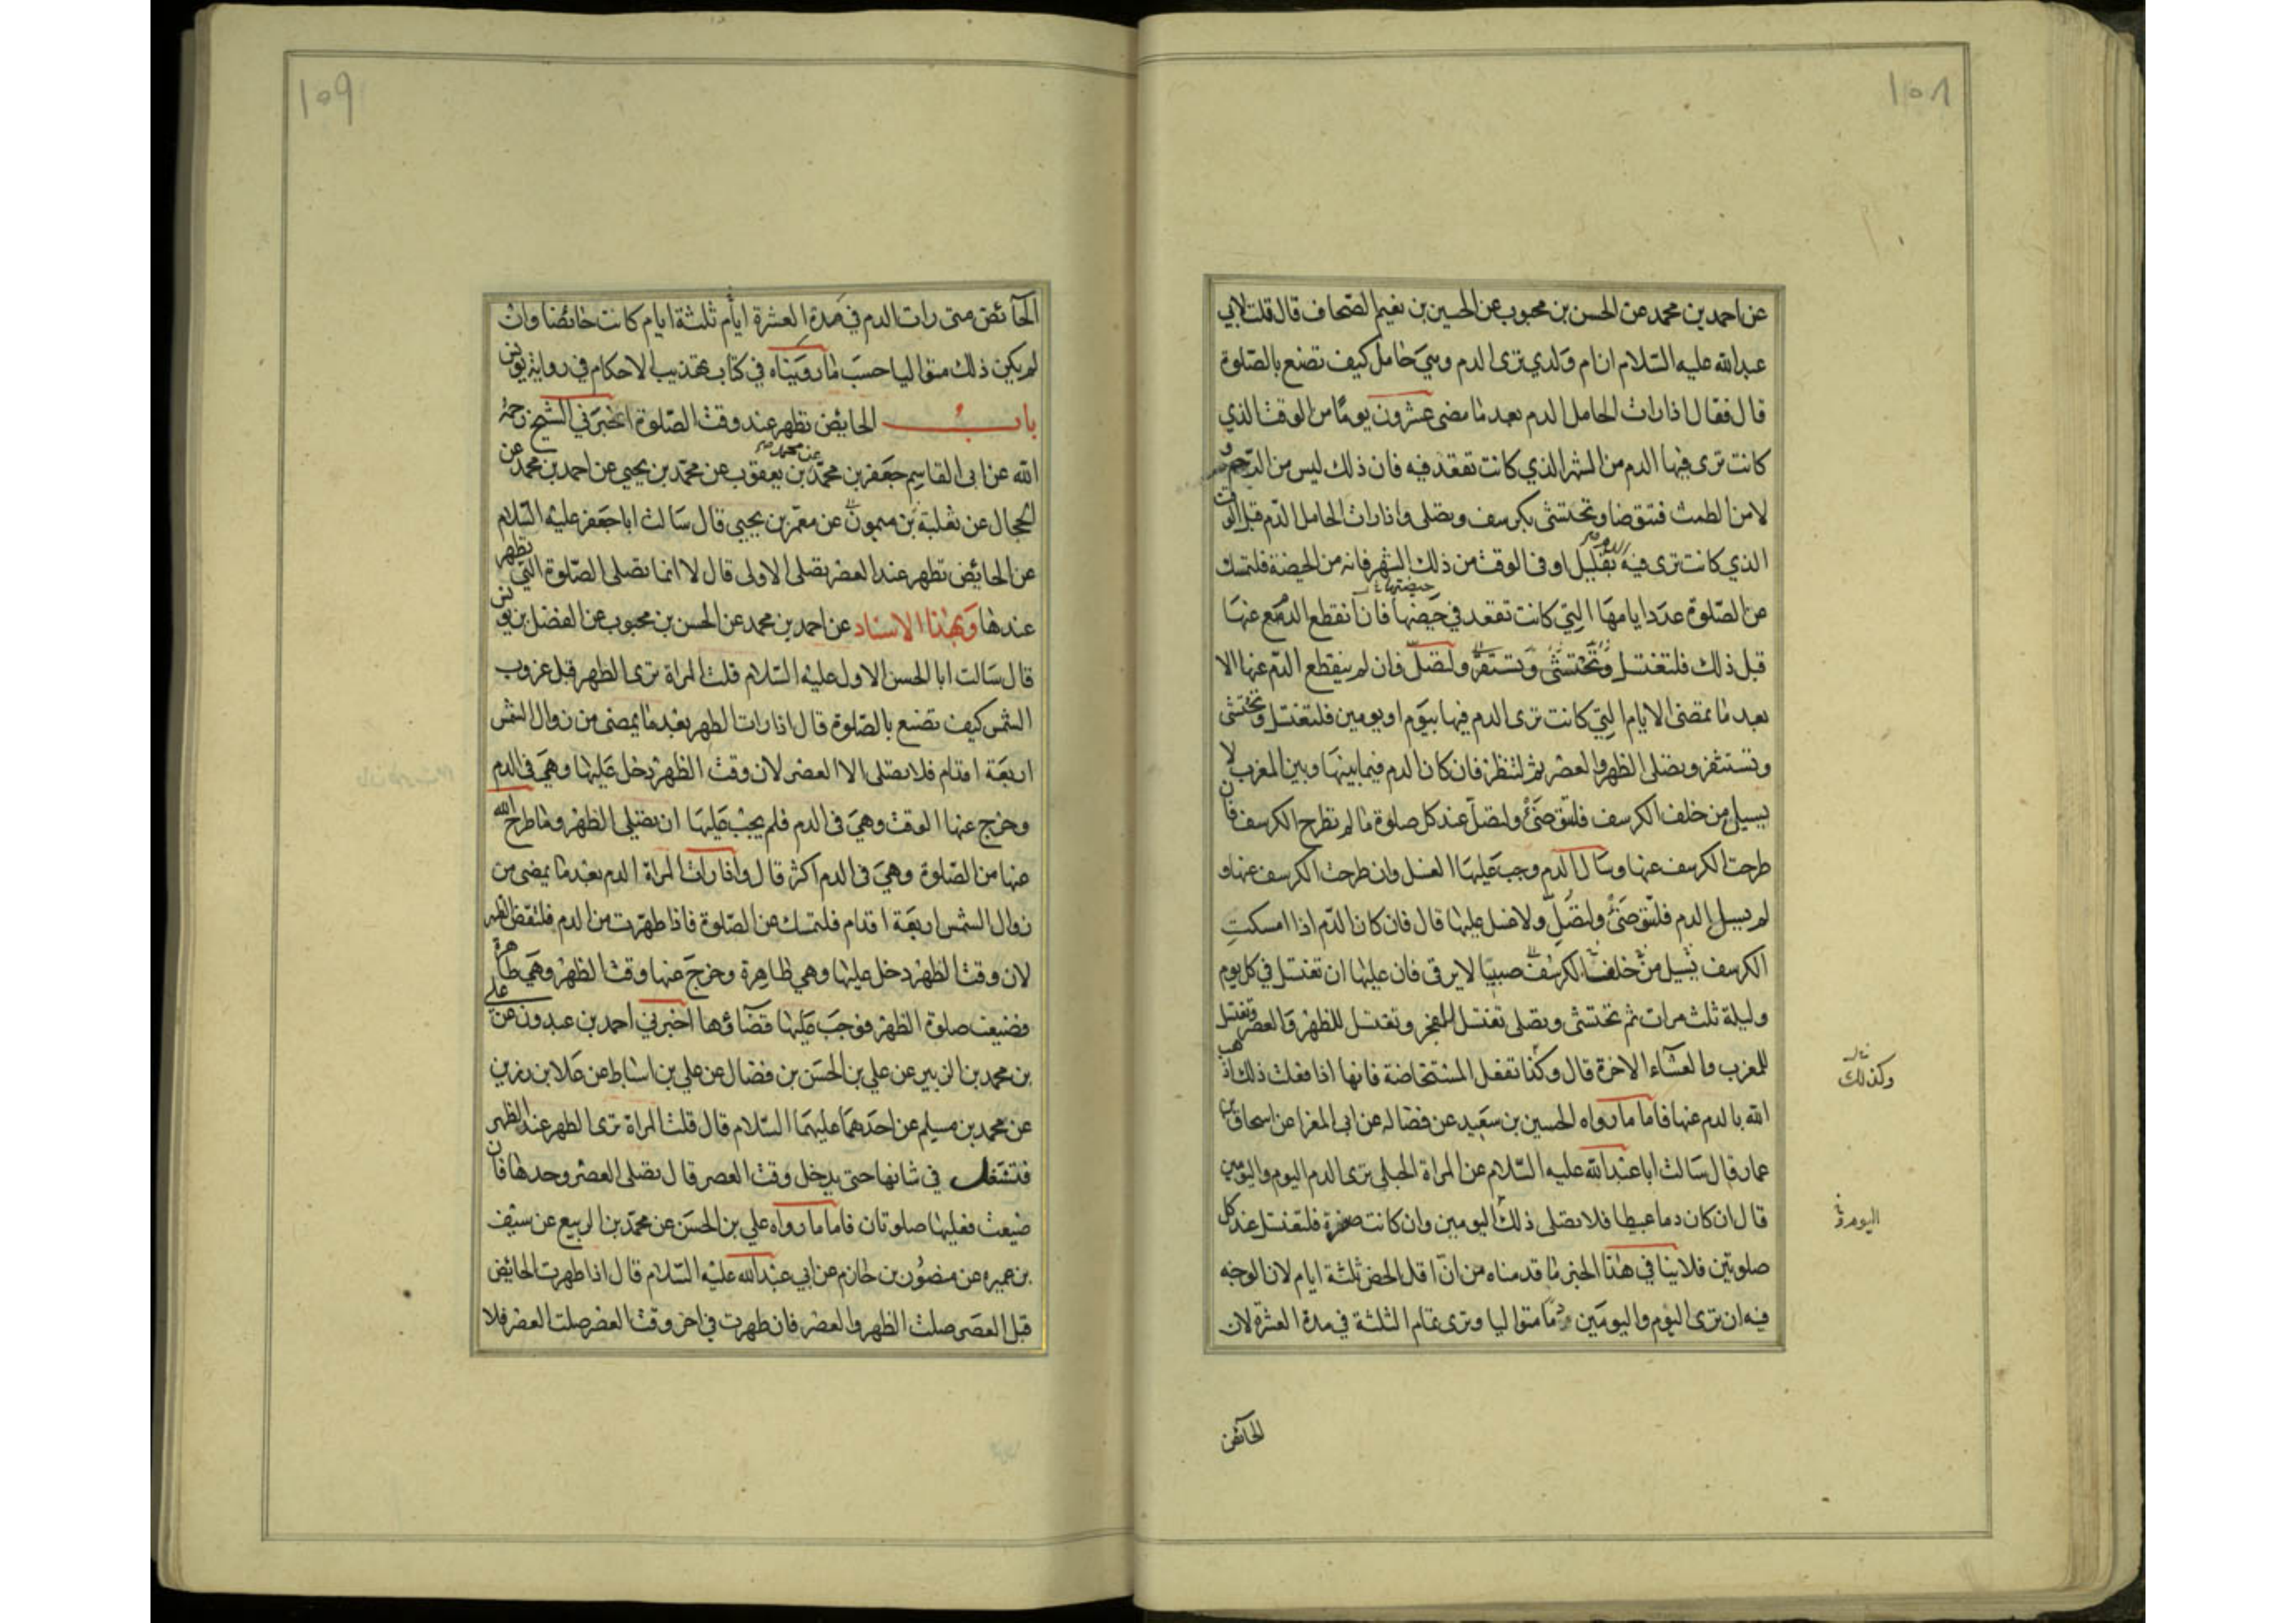 ١٥٨
عن احمد بن محمد عن الحسن بن محبوب عن الحسين بن نعيم الصحاف قال قلت لابي
عبدالله عليه السلام ان ام ولدي ترى الدم وهي حامل كيف تصنع بالصلوة
قال فقال اذا رات الحامل الدم بعد ما مضى عشرون يوما من الوقت الذي
كانت ترى فيها الدم من الشهر الذي كانت تقعد فيه فان ذلك ليس من الرحم و
لا من الطمث فتتوضا وتحتشى بكرسف وتصلى واذا رات الحامل الدم قبل الوقت
الذي كانت ترى فيه الدم بقليل او في الوقت من ذلك الشهر فانه من الحيضة فلتمسك
عن الصلوة عدد ايامها التي كانت تقعد في حيضها حيضتها فان انقطع الدم عنها
قبل ذلك فلتغتسل وتحتشى وتستثفر ولتصل فان لم ينقطع الدم عنها الا
بعد ما تمضى الايام التي كانت ترى الدم فيها بيوم او يومين فلتغتسل وتحتشى
وتستثفر وتصلى الظهر والعصر ثم لتنظر فان كان الدم فيما بينها وبين المغرب لا
يسيل من خلف الكرسف فلتتوضئ ولتصل عند كل صلوة ما لم تطرح الكرسف فان
طرحت الكرسف عنها وسال الدم وجب عليها الغسل وان طرحت الكرسف عنها و
لم يسيل الدم فلتتوضئ ولتصل ولا غسل عليها قال فان كان الدم اذا امسكت
الكرسف يسيل من خلف الكرسف صبيبا لا يرقى فان عليها ان تغتسل في كل يوم
وليلة ثلث مرات ثم تحتشى وتصلى تغتسل للفجر وتغتسل للظهر والعصر وتغتسل
للمغرب والعشاء الاخرة قال وكذا تفعل المستحاضة فانها اذا فعلت ذلك اذهب
وكذلك
الله بالدم عنها فاما ما رواه الحسين بن سعيد عن فضاله عن ابى المغرا عن اسحاق بن
عمار قال سالت ابا عبدالله عليه السلام عن المراة الحبلى ترى الدم اليوم واليومين
قال ان كان دما عبيطا فلا تصلى ذلك اليومين وان كانت صفرة فلتغتسل عند كل
اليوم و
صلوتين فلا ينافي هذا الخبر ما قدمناه من ان اقل الحيض ثلثة ايام لان الوجه
فيه ان ترى اليوم واليومين دما متواليا وترى تمام الثلثة في مدة العشرة لان
الحآئض
١٥٩
الحآئض متى رات الدم في مدة العشرة ايام ثلثة ايام كانت حائضا وان
لم يكن ذلك متواليا حسب ما رويناه في كتاب تهذيب الاحكام في رواية يونس
باب الحايض تطهر عند وقت الصلوة اخبرني الشيخ رحمه
الله عن ابى القاسم جعفر بن محمد عن محمد بن يعقوب عن محمد بن يحيى عن احمد بن محمد عن
الحجال عن ثعلبة بن ميمون عن معمر بن يحيى قال سالت ابا جعفر عليه السلام
عن الحائض تطهر عند العصر تصلى الاولى قال لا انما تصلى الصلوة التي تطهر
عندها وبهذا الاسناد عن احمد بن محمد عن الحسن بن محبوب عن الفضل بن يونس
قال سالت ابا الحسن الاول عليه السلام قلت المراة ترى الطهر قبل غروب
الشمس كيف تصنع بالصلوة قال اذا رات الطهر بعد ما يمضى من زوال الشمس
اربعة اقدام فلا تصلى الا العصر لان وقت الظهر دخل عليها وهي في الدم
وخرج عنها الوقت وهي في الدم فلم يجب عليها ان تصلى الظهر وما طرح الله
عنها من الصلوة وهي في الدم اكثر قال واذا رات المراة الدم بعد ما يمضى من
زوال الشمس اربعة اقدام فلتمسك عن الصلوة فاذا طهرت من الدم فلتقض الظهر
لان وقت الظهر دخل عليها وهي طاهرة وخرج عنها وقت الظهر وهي طاهرة
فضيعت صلوة الظهر فوجب عليها قضآؤها اخبرني احمد بن عبدون عن على
بن محمد بن الزبير عن علي بن الحسن بن فضال عن علي بن اسباط عن علا بن رزين
عن محمد بن مسلم عن احدهما عليهما السلام قال قلت المراة ترى الطهر عند الظهر
فتشتغل في شانها حتى يدخل وقت العصر قال تصلى العصر وحدها فان
ضيعت فعليها صلوتان فاما ما رواه علي بن الحسن عن محمد بن الربيع عن سيف
بن عميره عن منصور بن حازم عن ابي عبدالله عليه السلام قال اذا طهرت الحائض
قبل العصر صلت الظهر والعصر فان طهرت في اخر وقت العصر صلت العصر فلا